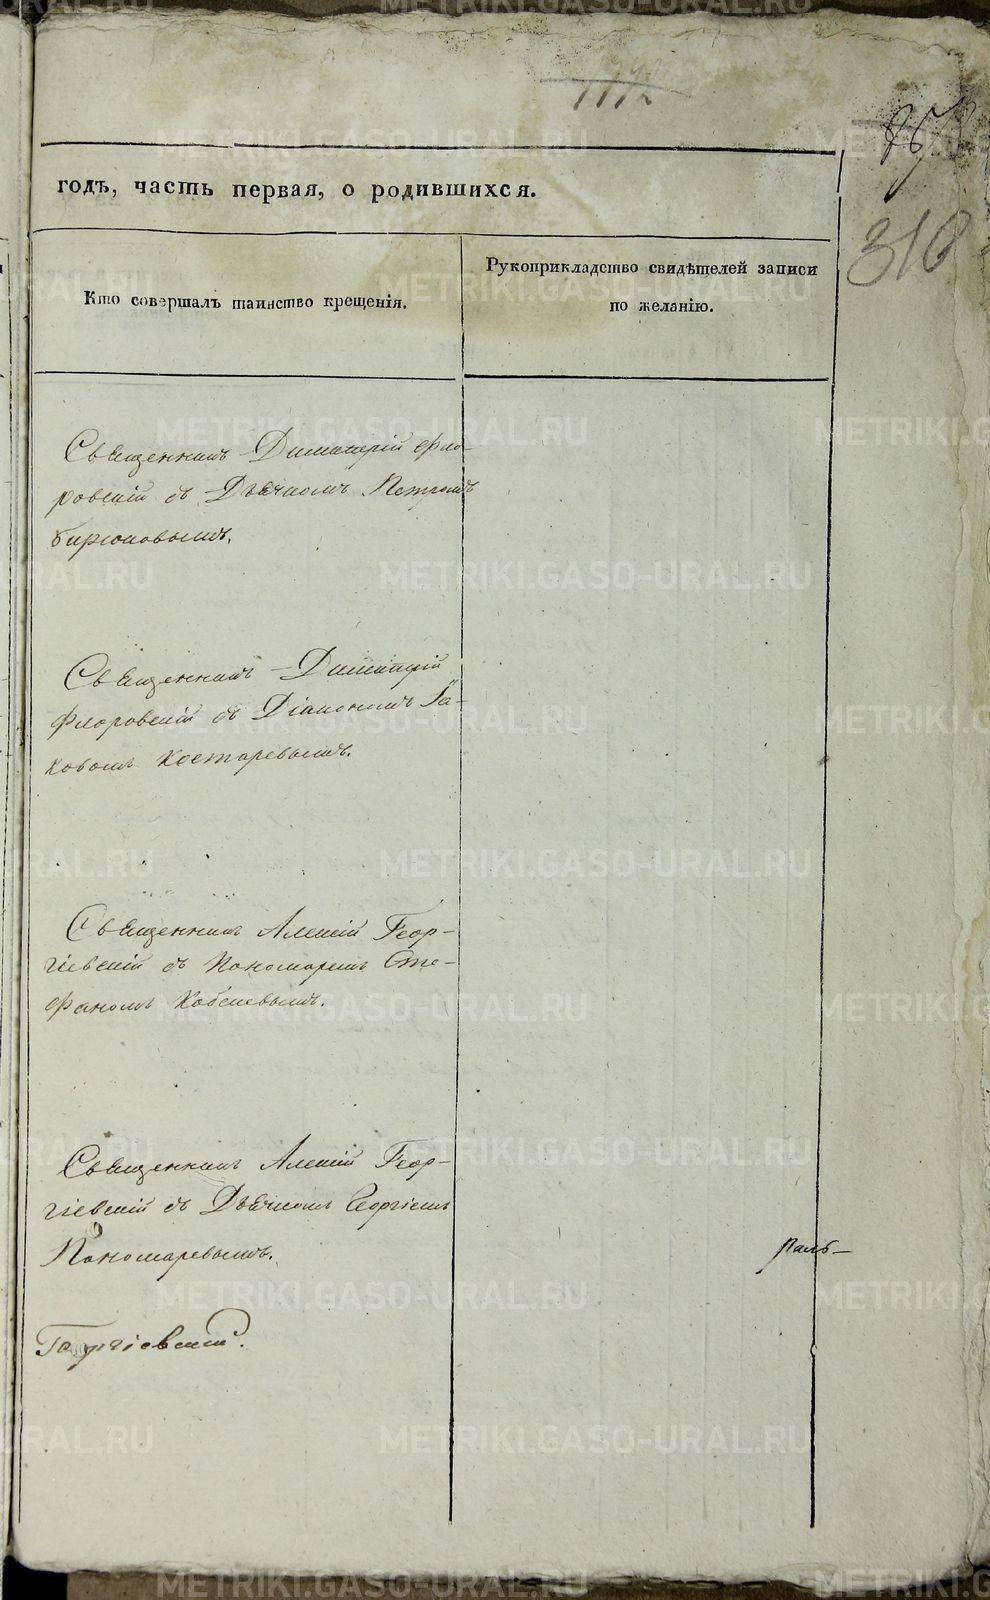 годѣ, часть первая, о родившихся.
Кто совершалъ таинство крещенія.
Рукоприкладство свидѣтелей записи
по желанію.
310
Священникъ Димитрій Фло-
ровскій съ Дьячкомъ Петромъ
Бирюковымъ.
Священникъ Димитрій
Флоровскій съ Діакономъ Іа-
ковомъ Костаревымъ.
Священникъ Алексій Геор-
гіевскій съ Пономаремъ Сте-
фаномъ Кобелевымъ.
Священникъ Алексій Геор-
гіевскій съ Дьячкомъ Георгіемъ
Пономаревымъ.
Георгіевскій.
METRIKI.GASO-URAL.RU